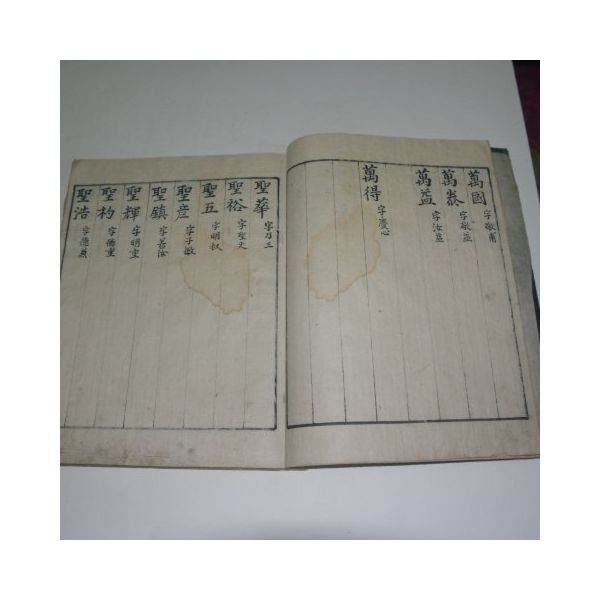 萬國 字敬甫
萬嵩 字敬益
萬益 字汝益
萬得 字慶心
聖華 字乃三
聖裕 字聖天
聖五 字明叔
聖彦 字子敬
聖鎮 字若汝
聖輝 字明宝
聖杓 字重
聖浩 字德